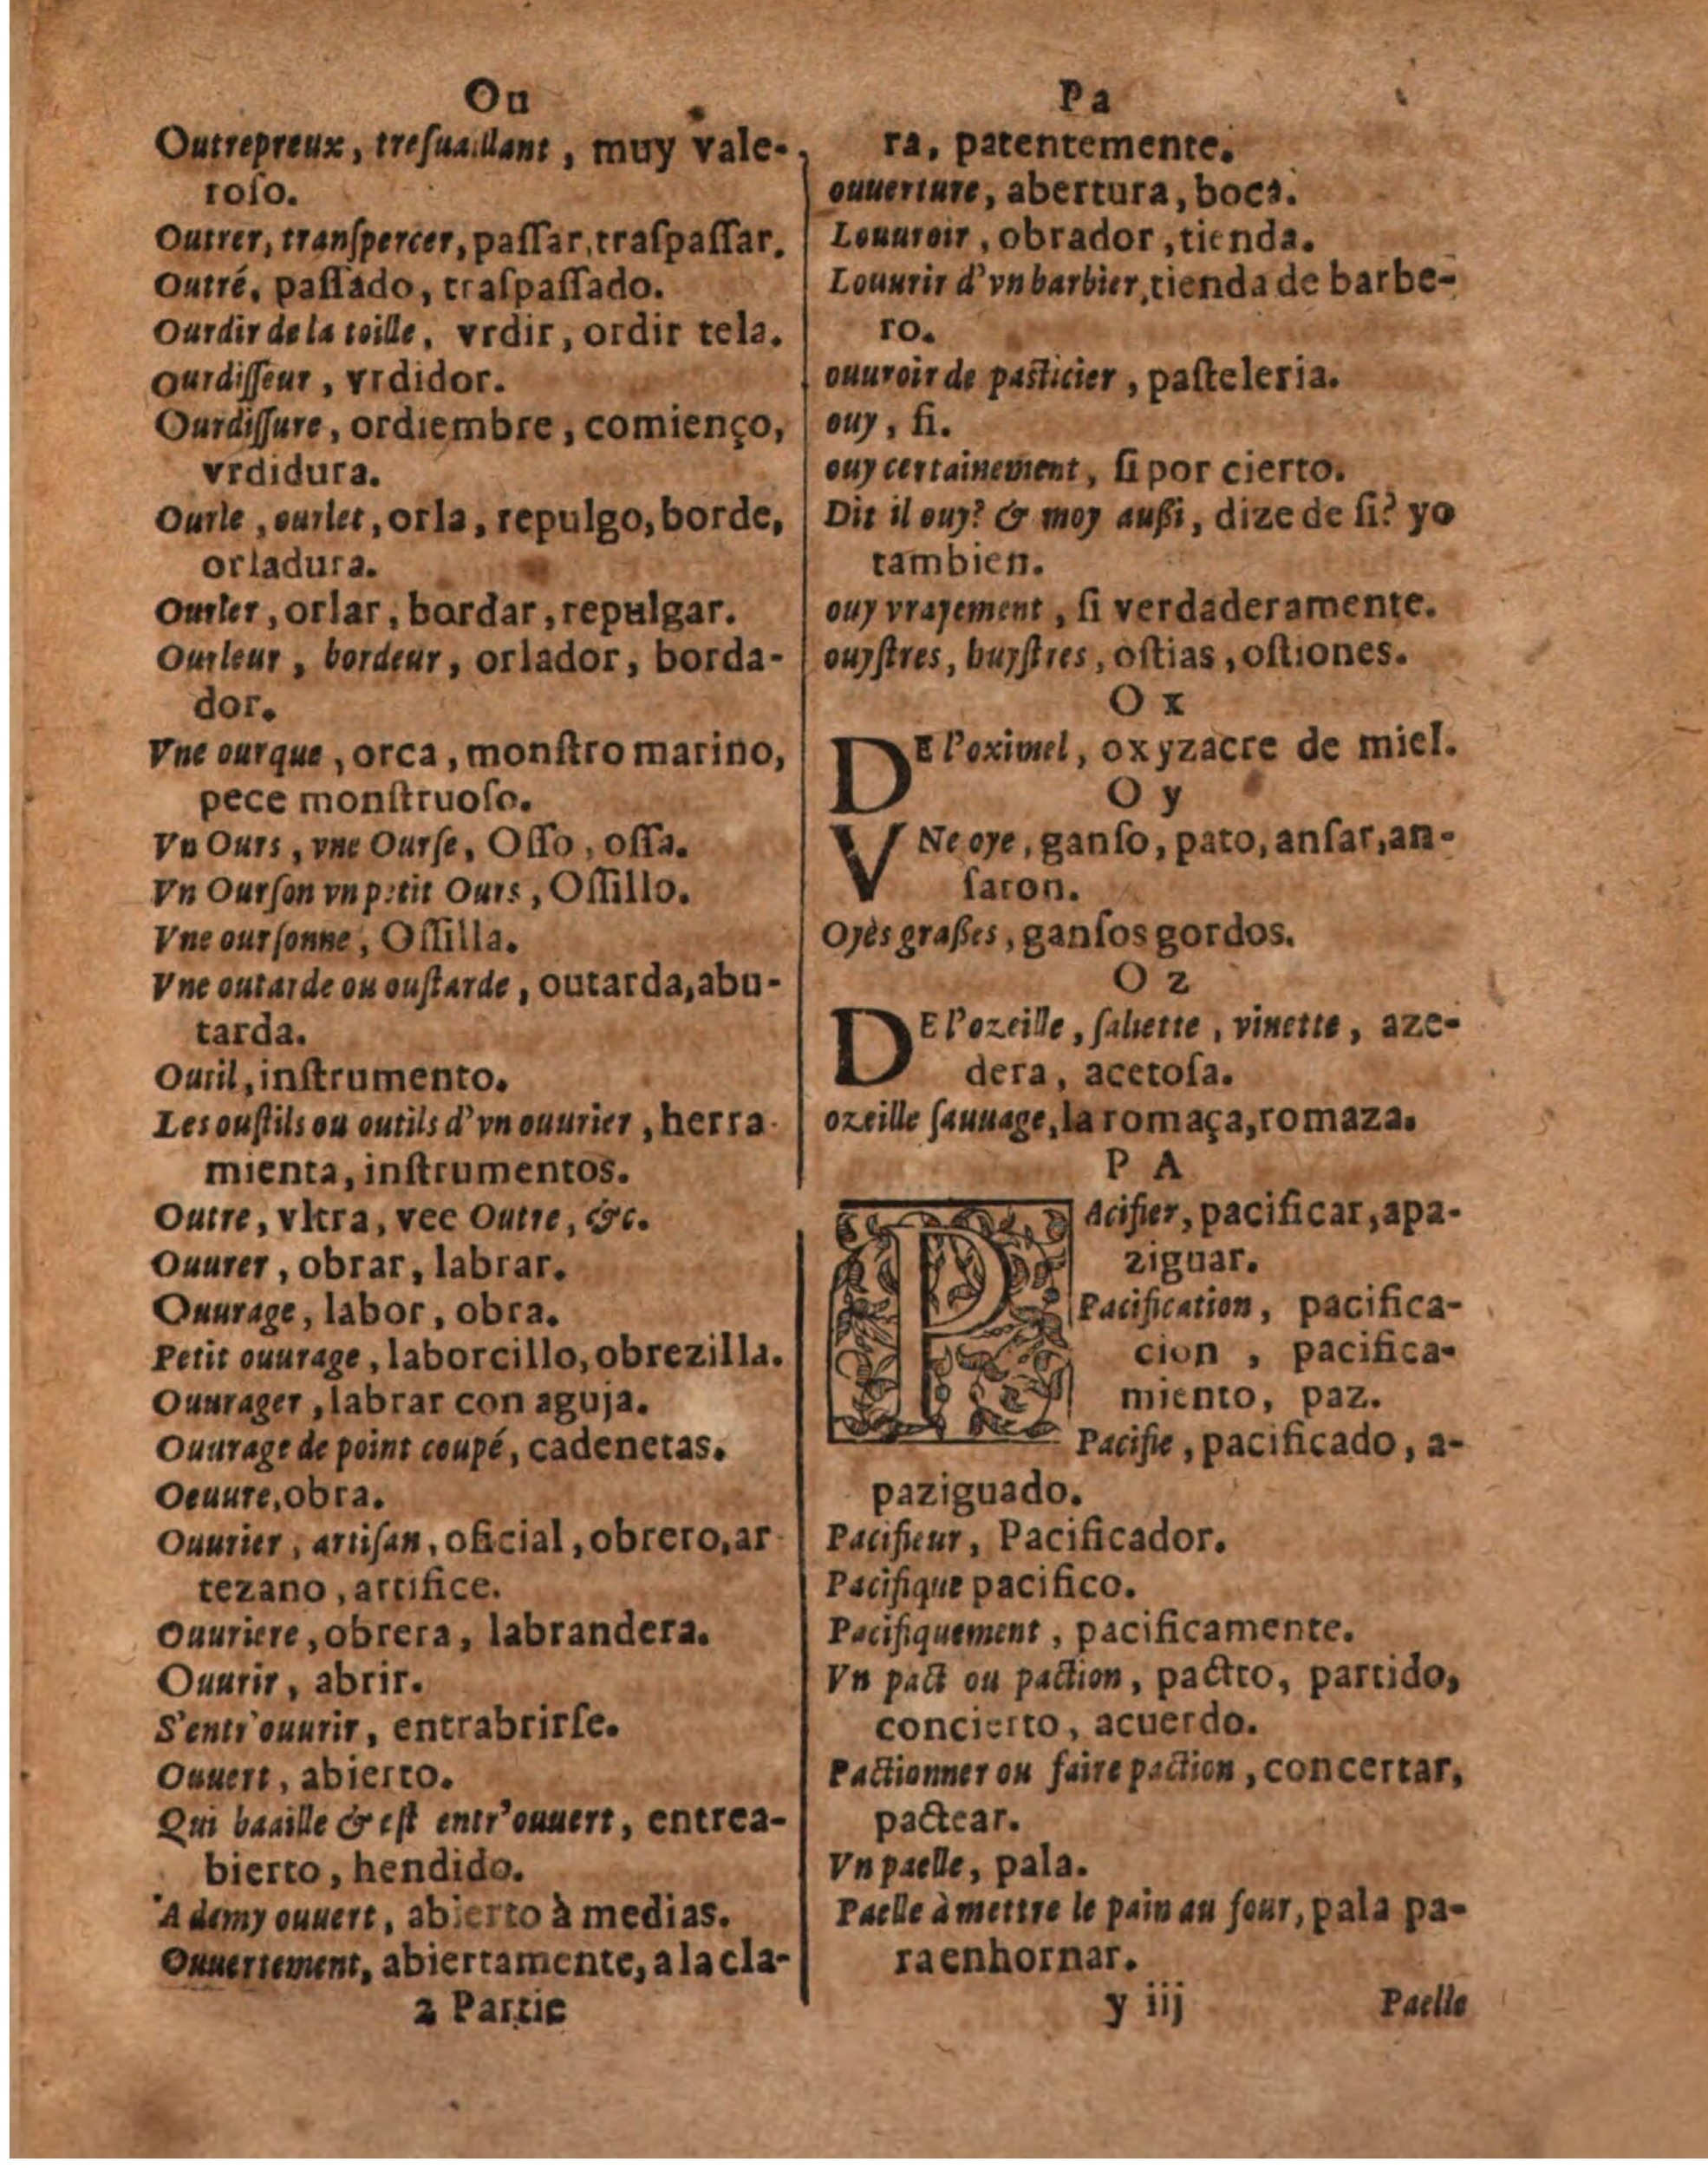 Ou
Outrepreux, treſuaillant, muy vale-
roſo.
Outrer, tranſpercer, paſſar, traſpaſſar.
Outré, paſſado, traſpaſſado.
Ourdir de la toille, vrdir, ordir tela.
ourdiſſeur, vrdidor.
Ourdiſſure, ordiembre, comienço,
vrdidura.
Ourle, ourlet, orla, repulgo, borde,
orladura.
Ourler, orlar, bordar, repulgar.
Ourleur, bordeur, orlador, borda-
dor.
Vne ourque, orca, monſtro marino,
pece monſtruoſo.
Vn Ours, vne Ourſe, Oſſo, oſſa.
Vn Ourſon vn petit Ours, Oſſillo.
Vne ourſonne, Oſſilla.
Vne outarde ou ouſtarde, outarda, abu-
tarda.
Outil, inſtrumento.
Les ouſtils ou outils d'vn ouurier, herra-
mienta, inſtrumentos.
Outre, vltra, vee Outre, &c.
Ouurer, obrar, labrar.
Ouurage, labor, obra.
Petit ouurage, laborcillo, obrezilla.
Ouurager, labrar con aguja.
Ouurage de point coupé, cadenetas.
Oeuure, obra.
Ouurier, artiſan, oficial, obrero, ar-
tezano, artifice.
Ouuriere, obrera, labrandera.
Ouurir, abrir.
S'entr'ouurir, entrabrirſe.
Ouuert, abierto.
Qui baaille & eſt entr'ouuert, entrea-
bierto, hendido.
A demy ouuert, abierto à medias.
Ouuertement, abiertamente, a la cla-
2 Partie
Pa
ra, patentemente.
ouuerture, abertura, boca.
Louuroir, obrador, tienda.
Louurir d'vn barbier, tienda de barbe-
ro.
ouuroir de paſticier, paſteleria.
ouy, ſi.
ouy certainement, ſi por cierto.
Dit il ouy? & moy außi, dize de ſi? yo
tambien.
ouy vrayement, ſi verdaderamente.
ouyſtres, huyſtres, oſtias, oſtiones.
O x
DE l'oximel, oxyzacre de miel.
O y
VNe oye, ganſo, pato, anſar, an-
ſaron.
Oyès graßes, ganſos gordos.
O z
DE l'ozeille, ſaliette, vinette, aze-
dera, acetoſa.
ozeille ſauuage, la romaça, romaza.
P A
PAcifier, pacificar, apa-
ziguar.
Pacification, pacifica-
cion, pacifica-
miento, paz.
Pacifie, pacificado, a-
paziguado.
Pacifieur, Pacificador.
Pacifique pacifico.
Pacifiquement, pacificamente.
Vn pact ou paction, pactto, partido,
concierto, acuerdo.
Pactionner ou faire paction, concertar,
pactear.
Vn paelle, pala.
Paelle à mettre le pain au four, pala pa-
ra enhornar.
y iij
Paelle